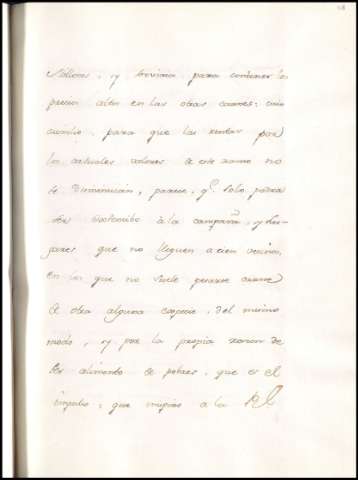 Millones, y serviria para contener los
precios altos en las otras carnes: cuio
auxilio, para que las rentas por
los actuales valores de este ramo no
se disminuian, parece, qe. solo podra
ser extensibo à la campaña, y lu-
gares que no lleguen a cien vecinos,
en los que no suele pesarse carne
de otra alguna especie, del mismo
modo, y por la propia razon de
ser alimento de pobres, que es el
impulso, que mueve a la Rl